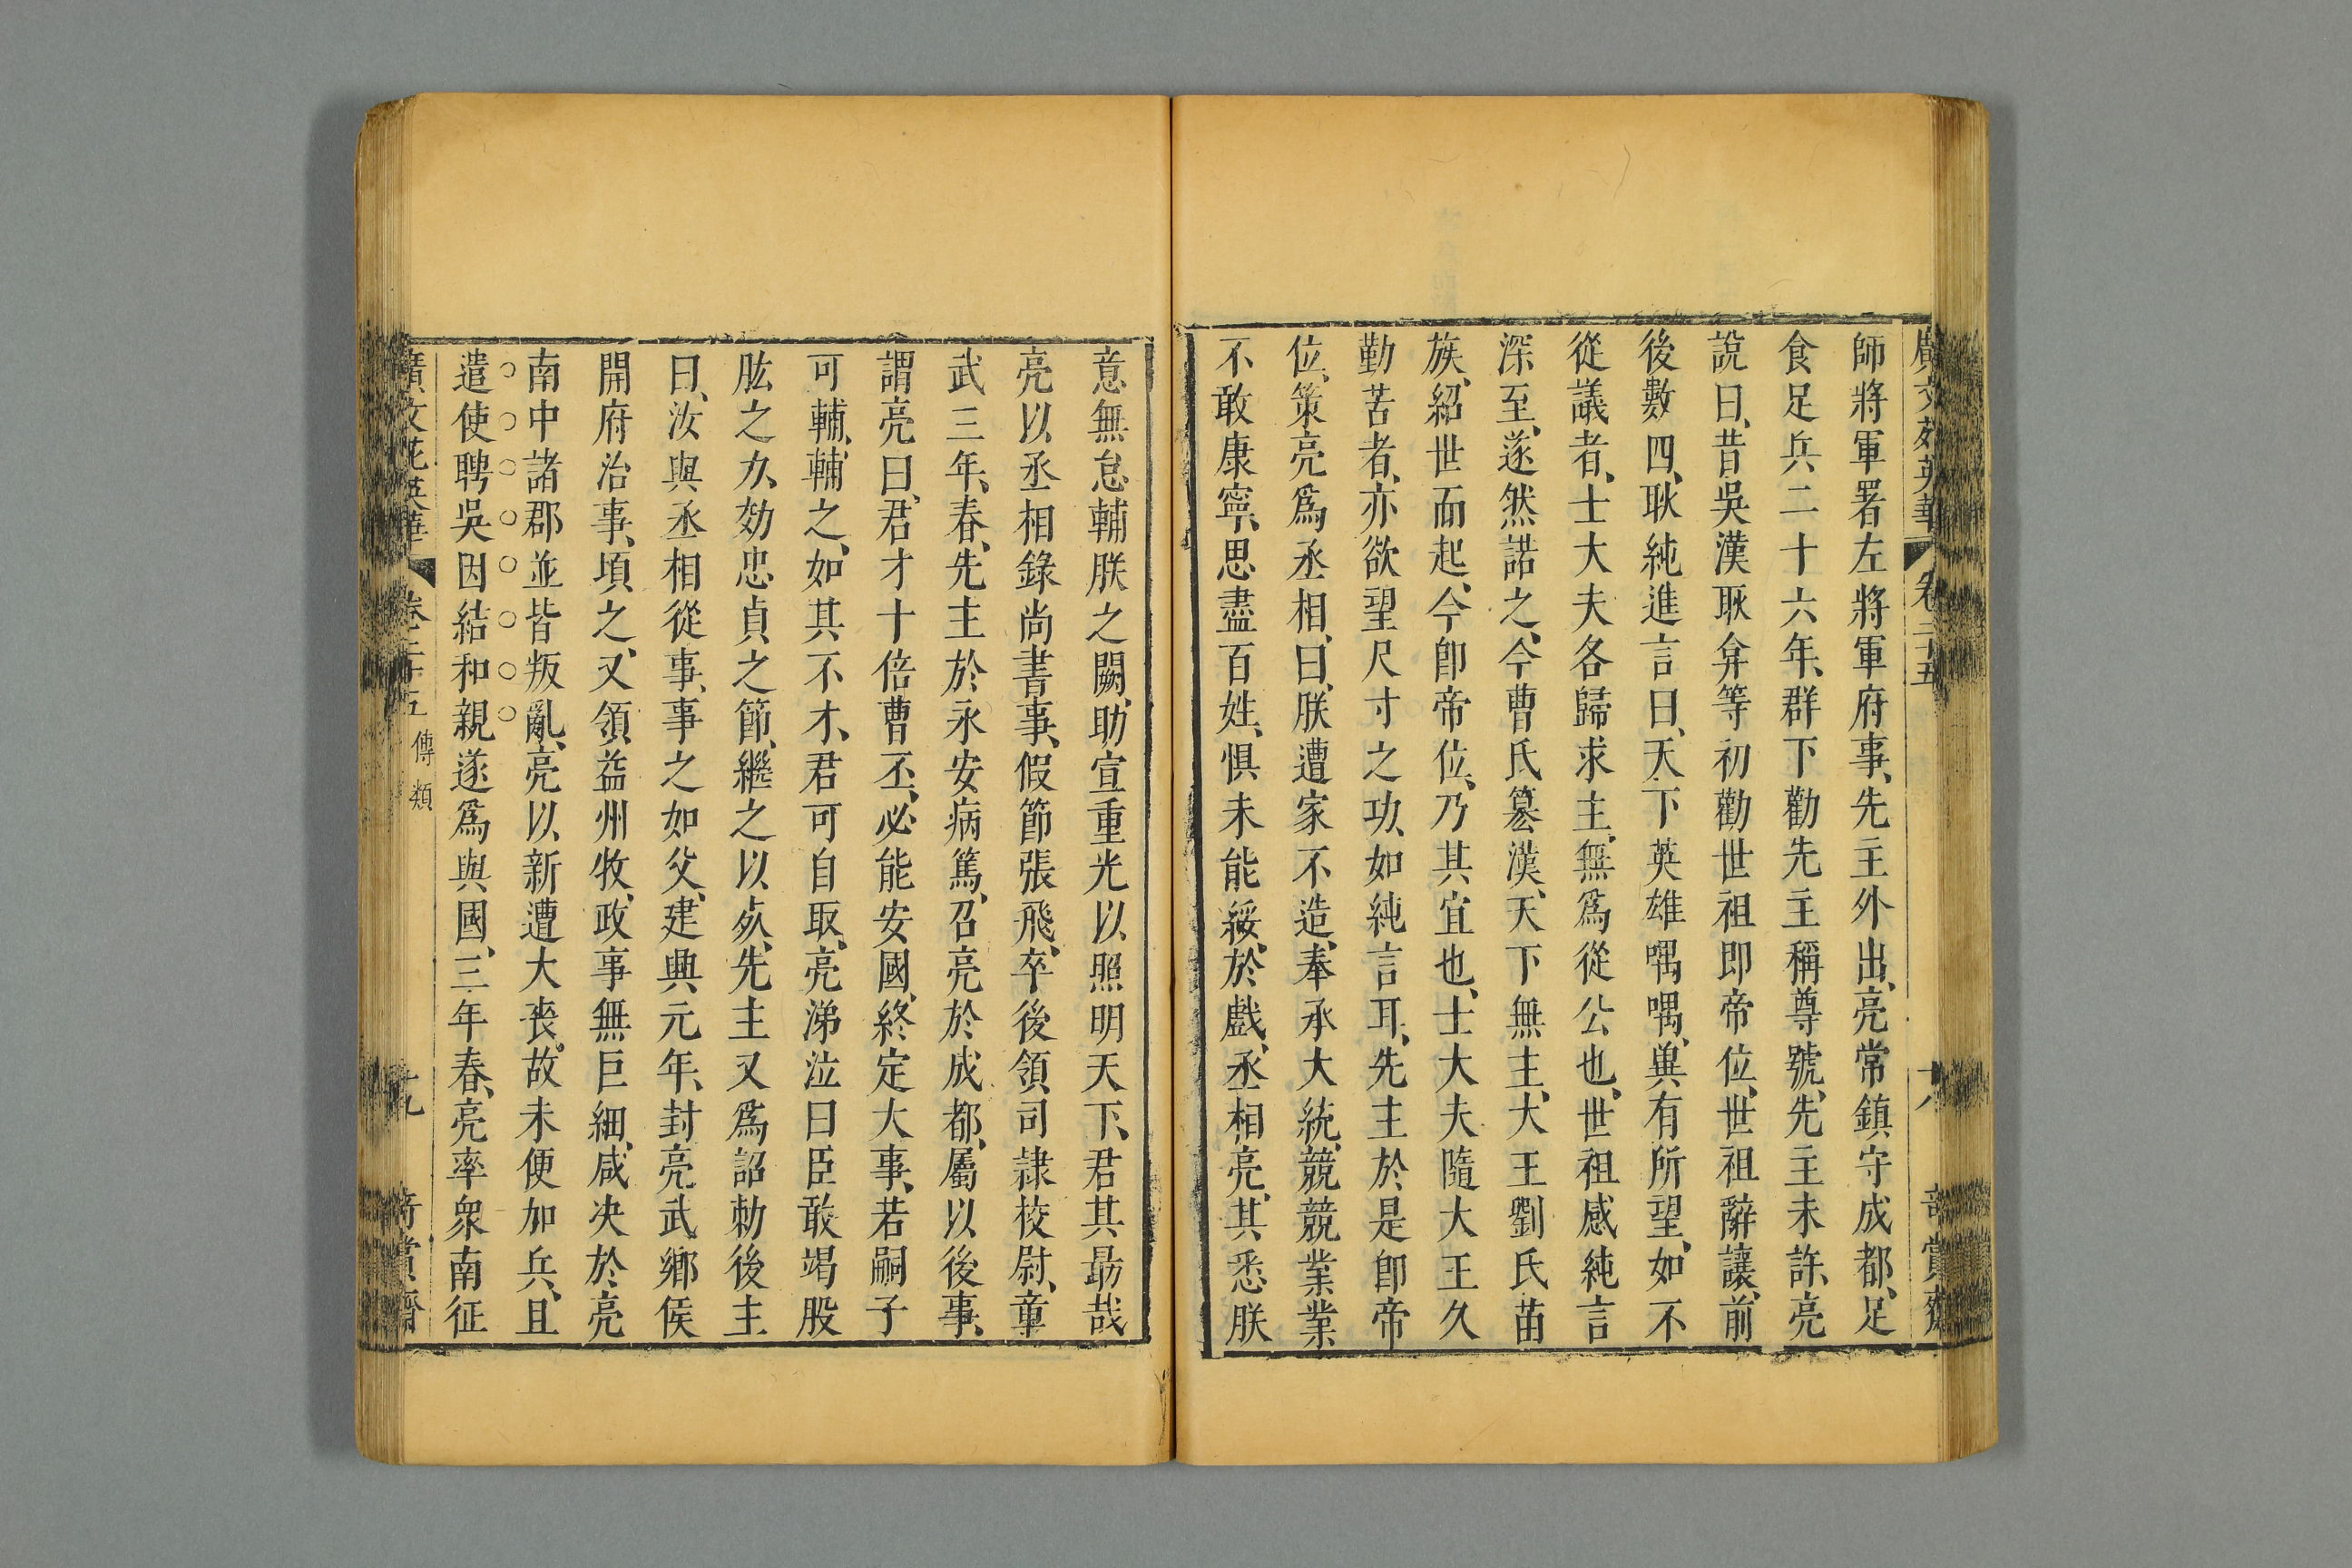 廣文苑英華 卷二十五 十八 奇賞齋
師將軍署左將軍府事、先主外出、亮常鎮守成都、足
食足兵二十六年、群下勸先主稱尊號、先主未許、亮
說曰、昔吳漢耿弇等初勸世祖即帝位、世祖辭讓、前
後數四、耿純進言曰、天下英雄喁喁、兾有所望、如不
從議者、士大夫各歸求主、無爲從公也、世祖感純言
深至、遂然諾之、今曹氏篡漢、天下無主、大王劉氏苗
族、紹世而起、今卽帝位、乃其宜也、士大夫隨大王久
勤苦者、亦欲望尺寸之功、如純言耳、先主於是卽帝
位、策亮爲丞相、曰、朕遭家不造、奉承大統、競競業業
不敢康寧、思盡百姓、惧未能綏、於戲、丞相亮、其悉朕
意無怠輔朕之闕、助宣重光以照明天下、君其勗哉
亮以丞相錄尚書事、假節張飛、卒後領司隷校尉、章
武三年、春、先主於永安病篤、召亮於成都、屬以後事、
謂亮曰、君才十倍曹丕、必能安國、終定大事、若嗣子
可輔、輔之、如其不才、君可自取、亮涕泣曰臣敢竭股
肱之力、効忠貞之節、繼之以死、先主又爲詔勅後主
曰、汝與丞相從事、事之如父、建興元年、封亮武鄉侯
開府治事、頃之、又領益州牧、政事無巨細、咸决於亮
南中諸郡並皆叛亂、亮以新遭大喪、故未便加兵、且
遣使聘吳因結和親遂爲與國、三年春、亮率衆南征
廣文苑英華 卷二十五 傳類 十九 奇賞齋